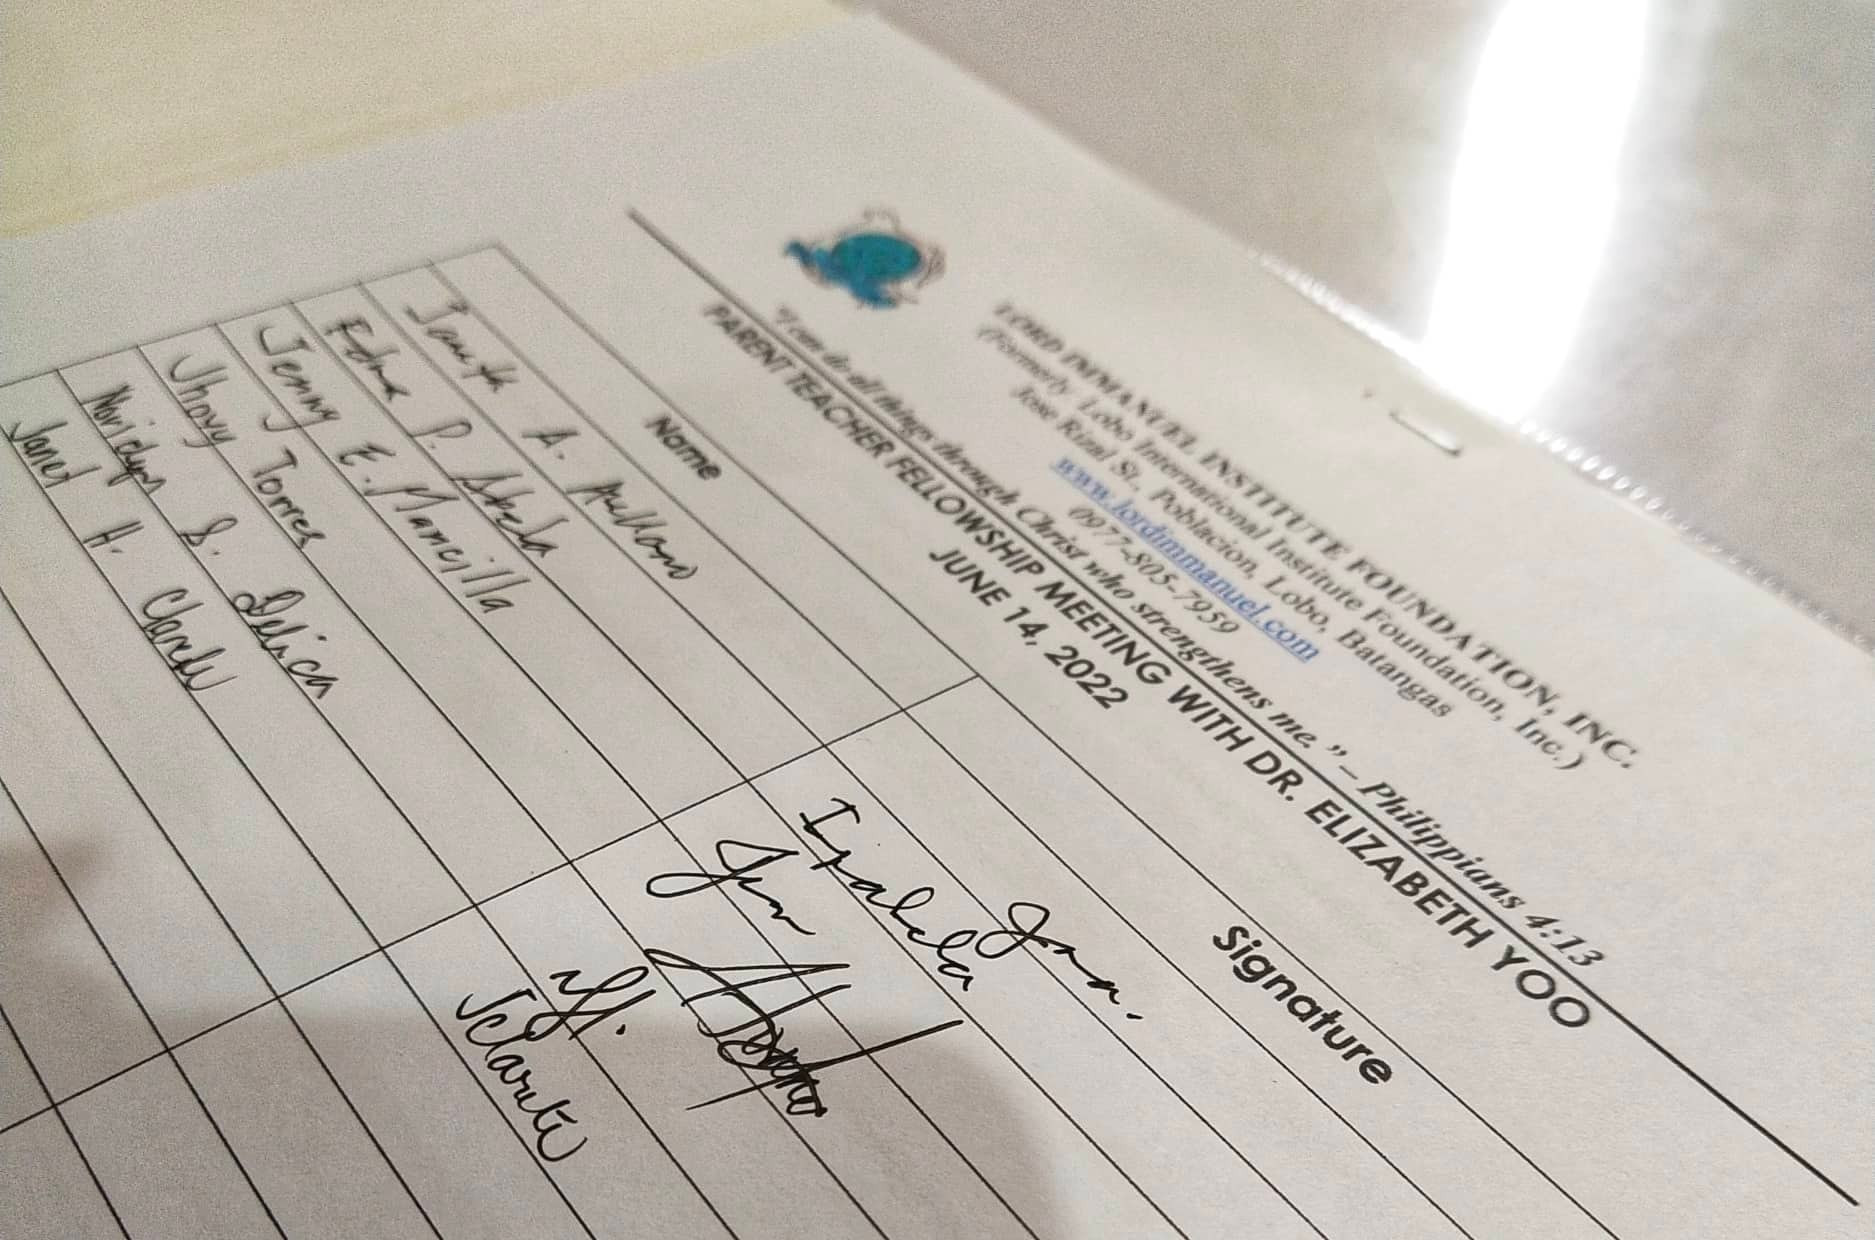 LORD IMMANUEL INSTITUTE FOUNDATION, INC.
(Formerly Lobo International Institute Foundation, Inc.)
Jose Rizal St., Poblacion, Lobo, Batangas
www.lordimmanuel.com
0977-805-7959
"I can do all things through Christ who strengthens me." – Philippians 4:13
PARENT TEACHER FELLOWSHIP MEETING WITH DR. ELIZABETH YOO
JUNE 14, 2022
Name Signature
A.
Edna P. Abela
Jenny E. Mancilla
Jhovy Torres
S. Delica
Janet H.